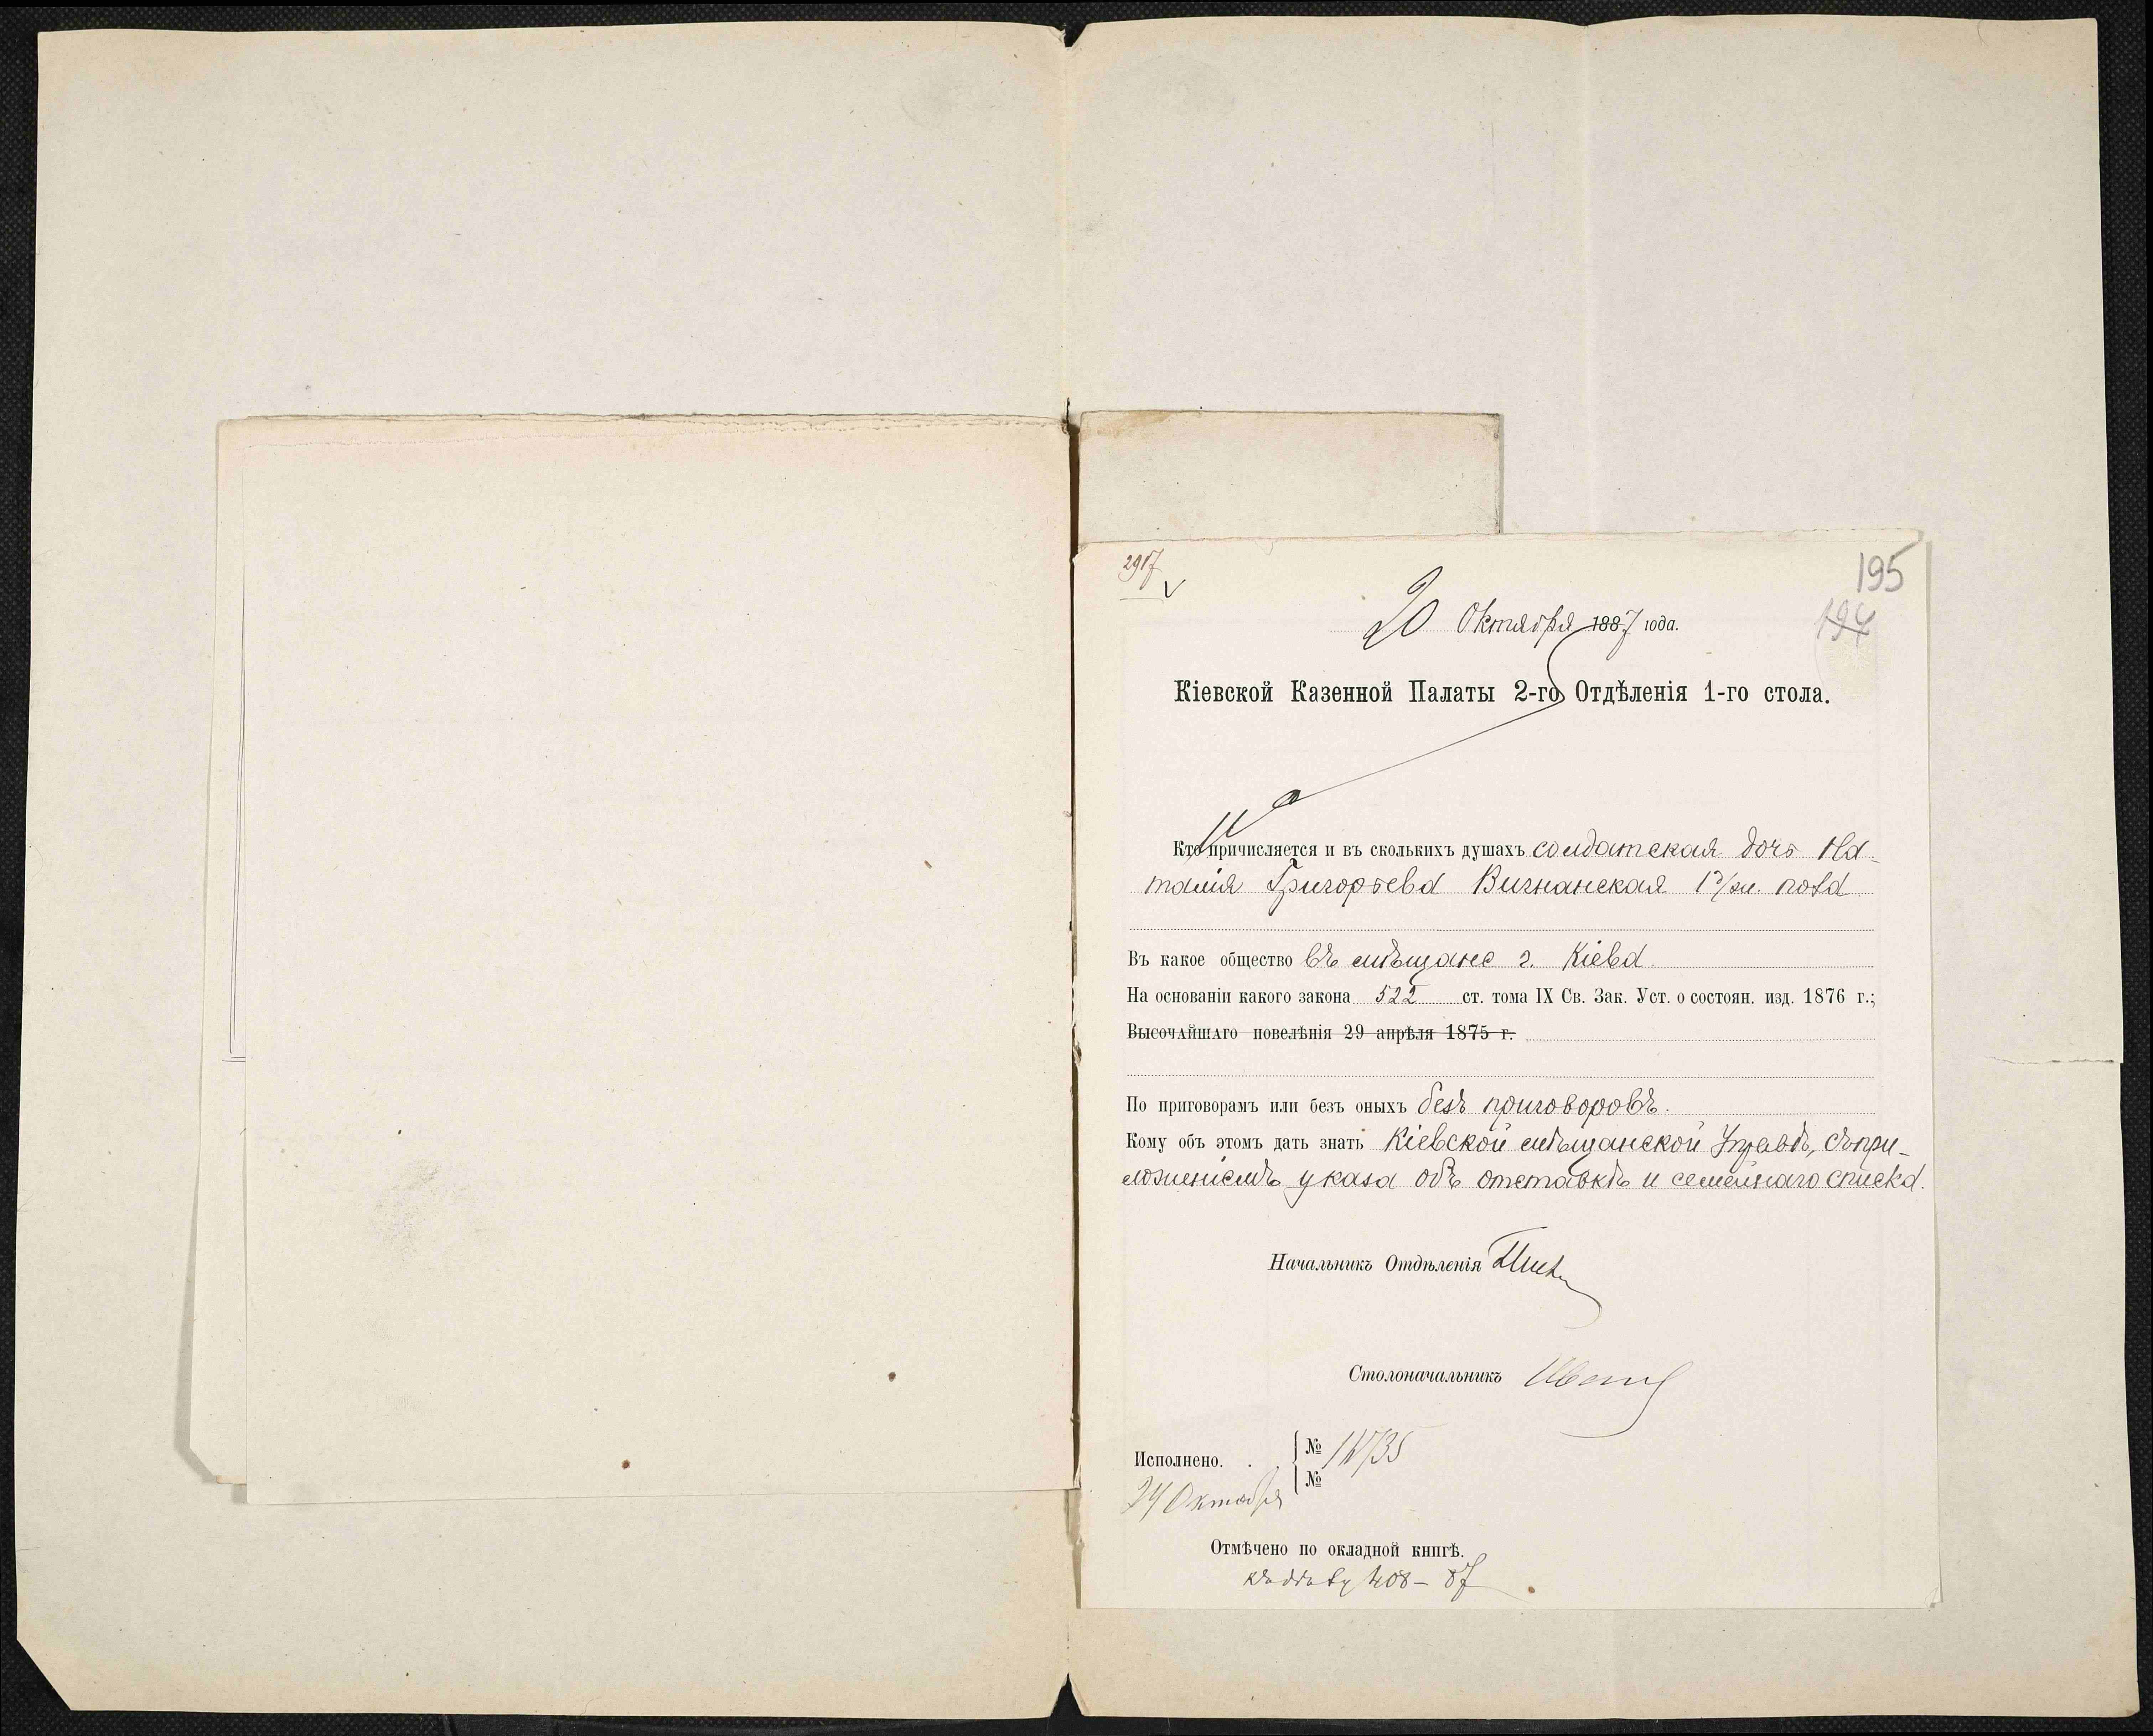 2917
195
194
20 Октября 1887 года.
Кіевской Казенной Палаты 2-го Отдѣленія 1-го стола.
Кто причисляется и въ сколькихъ душахъ солдатская дочь На-
талія Григорьева Вигнанская 1 д/жен. пола
Въ какое общество въ мѣщане г. Кіева.
На основаніи какого закона 522 ст. тома IX Св. Зак. Уст. о состоян. изд. 1876 г.;
Высочайшаго повелѣнія 29 апрѣля 1875 г.
По приговорамъ или безъ оныхъ безъ приговоровъ.
Кому объ этомъ дать знать Кіевской мѣщанской Управѣ, съ при-
ложеніемъ указа объ отставкѣ и семейнаго списка.
Начальникъ Отдѣленія
Столоначальникъ
Исполнено. . { №
№
24 Октября
Отмѣчено по окладной книгѣ.
къ дѣлу 408 – 87